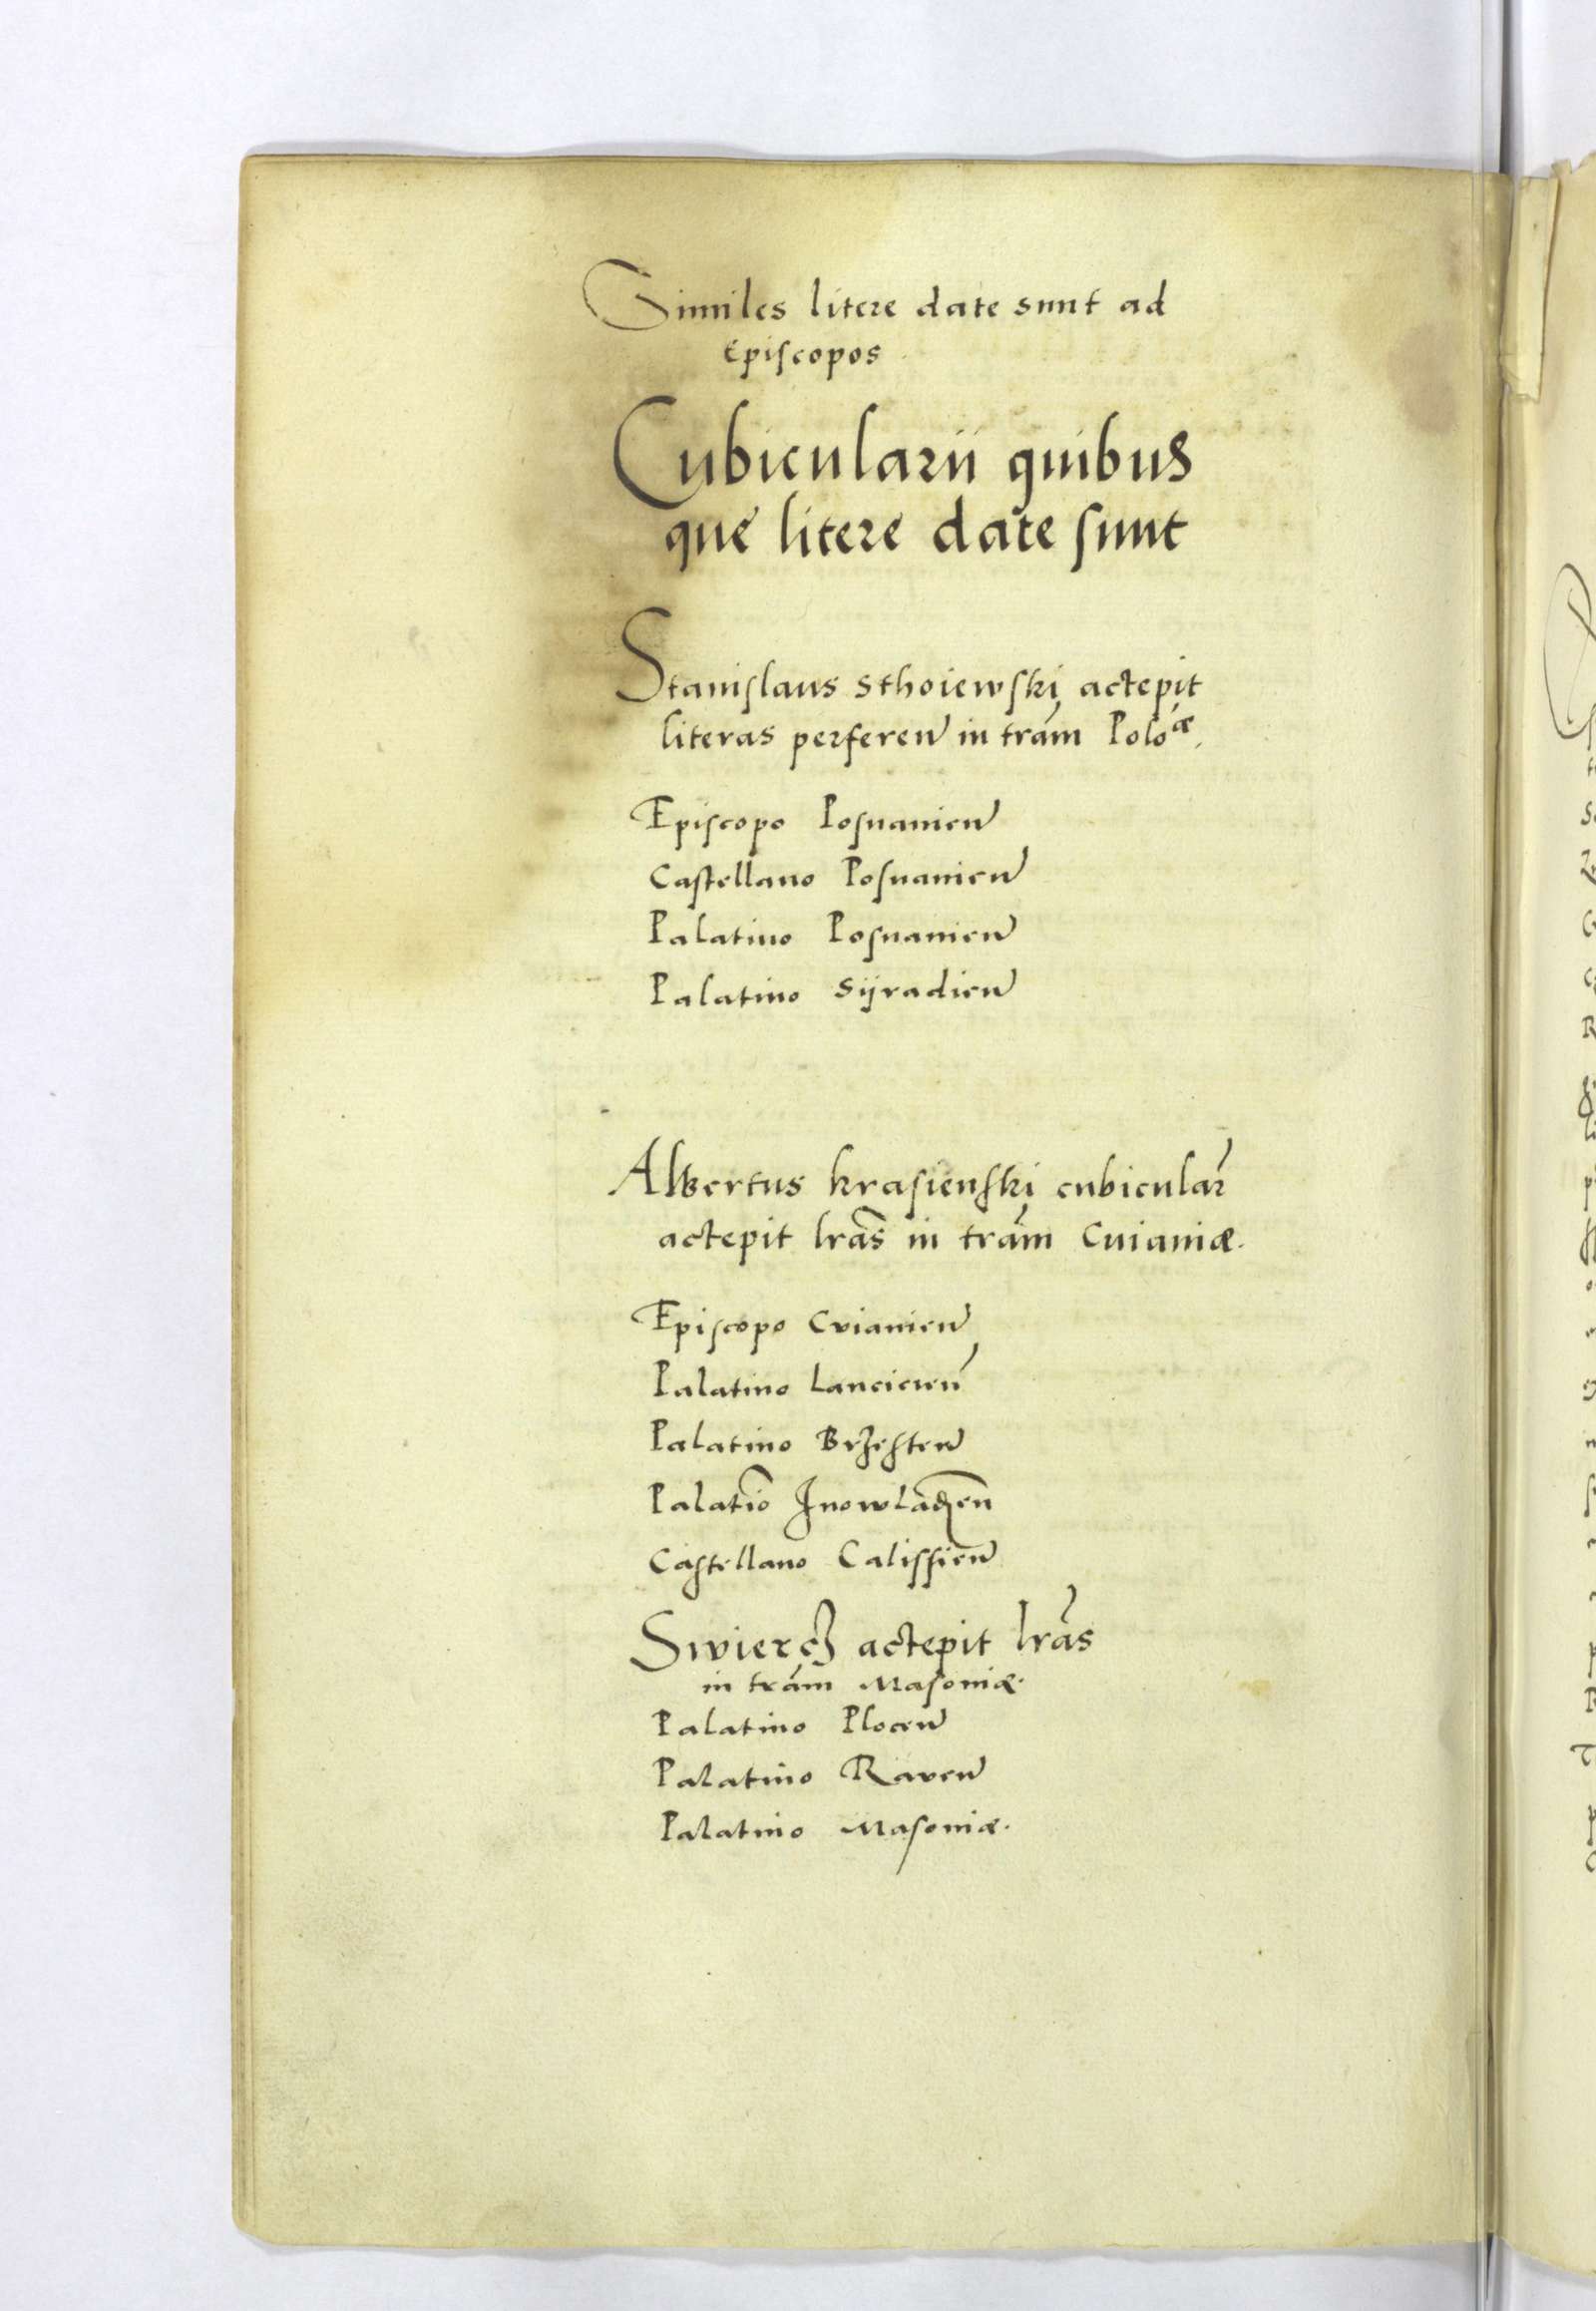 Similes litere date sunt ad
Episcopos
Cubicularii quibus
que litere date sunt
Stanislaus Sthoiewski accepit
literas perferen in trām Poloæ.
Episcopo Posnanien
Castellano Posnanien
Palatino Posnanien
Palatino Sijradien
Albertus krasienski cubicular
accepit lrās in trām Cuianiæ.
Episcopo Cuianien
Palatino Lancicien
Palatino Brzesten
Palatīo Inowladzen
Castellano Calissien
Swiercz accepit lrās
in trām Masoniæ.
Palatino Plocen
Palatino Raven
Palatino Masoniæ.